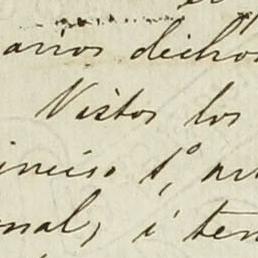 arios dichos
Vistos los
inciso 1º, ar
nal, i ten